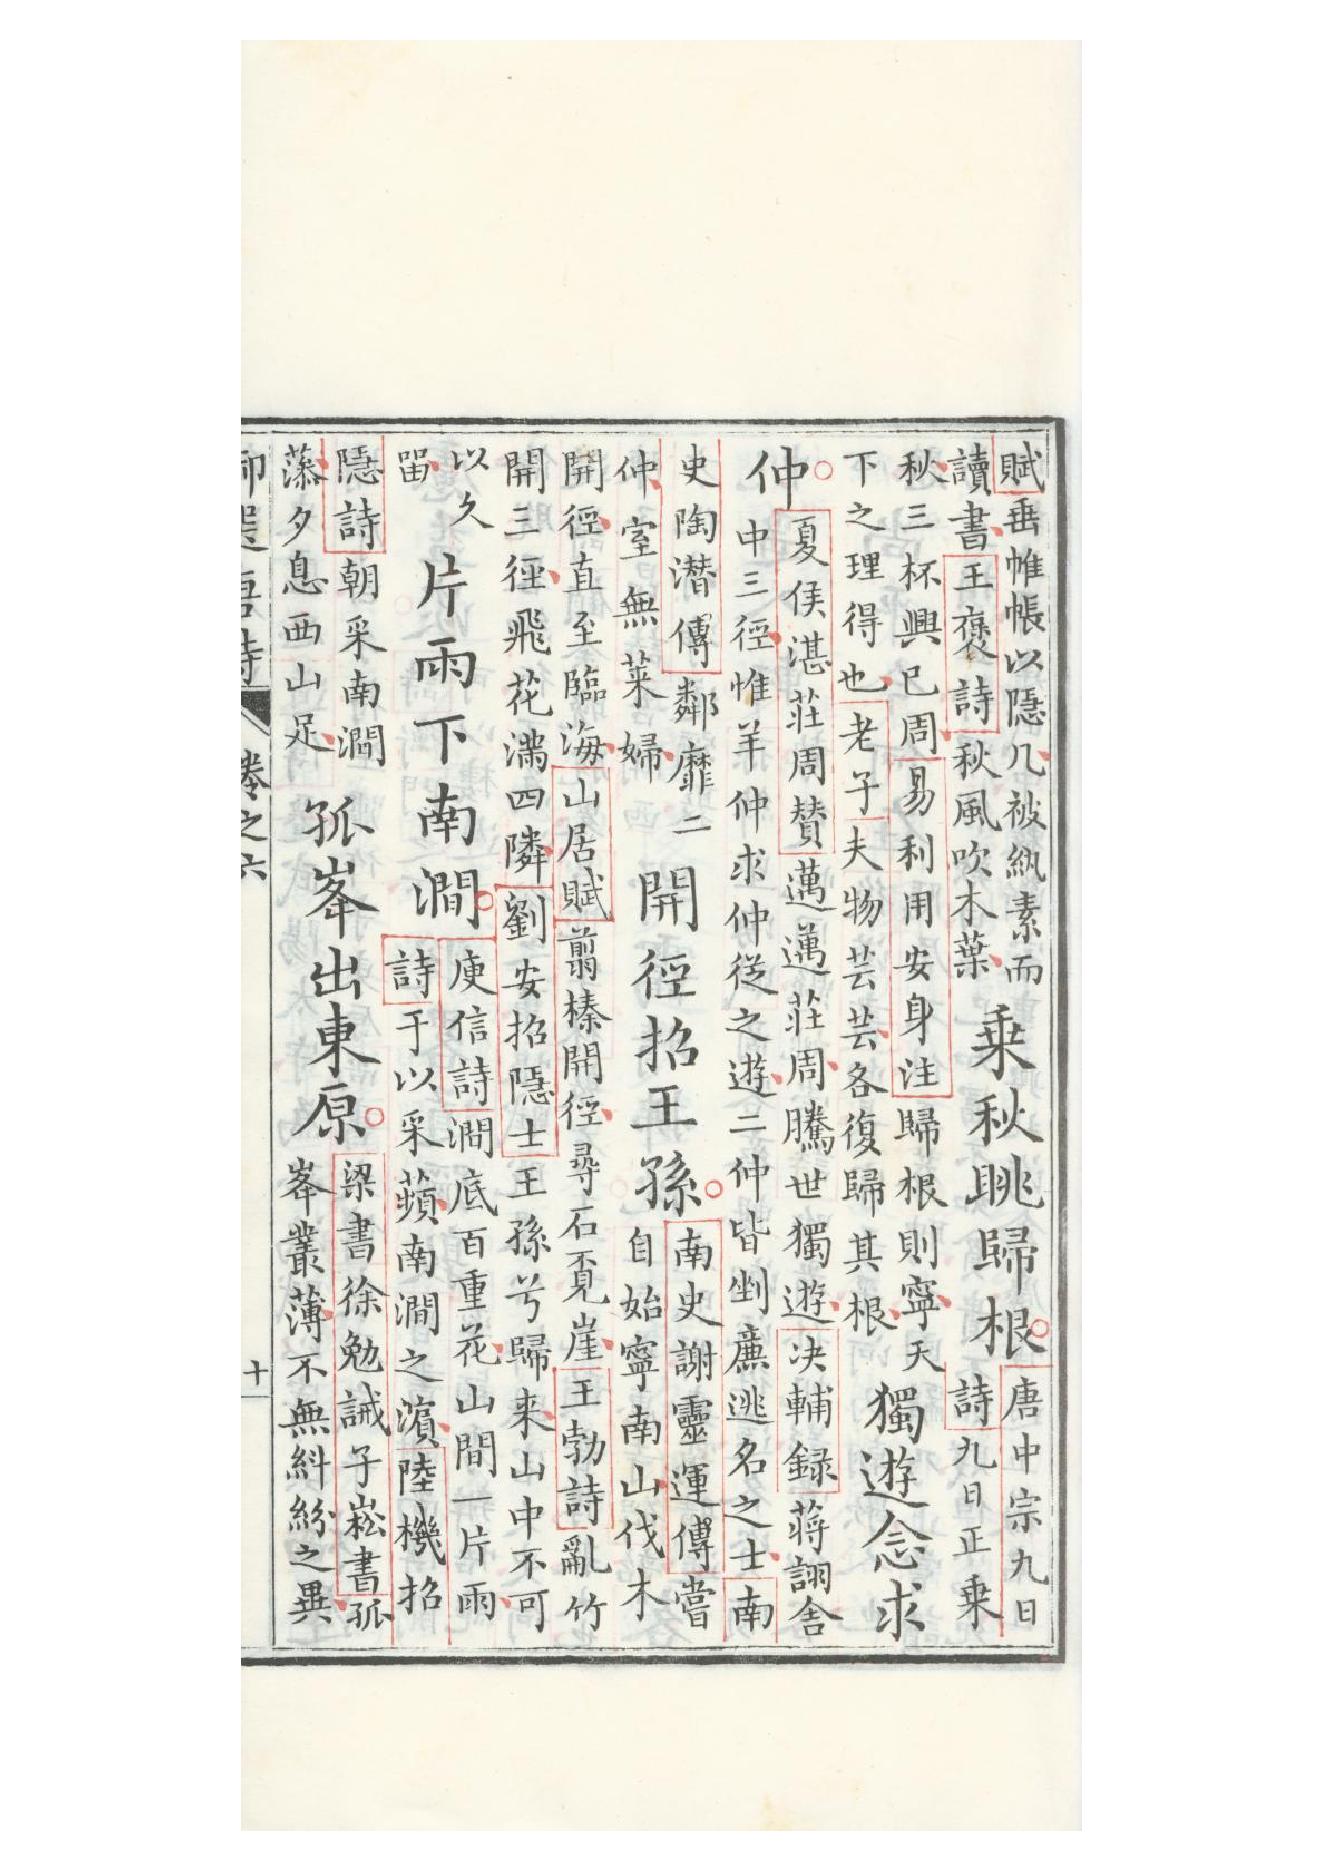 賦垂帷帳以隱几被紈素而
讀書王襃詩秋風吹木葉
乗秋眺歸根
唐中宗九日
詩九日正乗
秋三杯興已周易利用安身注歸根則寧天
下之理得也老子夫物芸芸各復歸其根
獨遊念求
仲
夏侯湛莊周贊邁邁莊周騰世獨遊决輔録蔣詡舍
中三徑惟羊仲求仲從之遊二仲皆剉廉逃名之士南
史陶潜傳鄰靡二
仲室無莱婦
開徑招王孫
南史謝靈運傳嘗
自始寧南山伐木
開徑直至臨海山居賦翦榛開徑尋石覔崖王勃詩亂竹
開三徑飛花滿四隣劉安招隱士王孫兮歸来山中不可
以久
畱
片雨下南澗
庾信詩澗底百重花山間一片雨
詩于以采蘋南澗之濵陸機招
隱詩朝采南澗
藻夕息西山足
孤峯出東原
梁書徐勉誡子崧書孤
峯叢薄不無糾紛之異
御選唐詩
卷之六
十